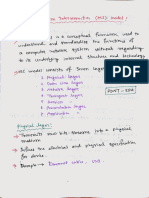 Interconnection (OSI) model:
is a conceptual framework used to
understands and standardize the functions of
a computer network system without regarding
to its underlying internal structure and technology.
OSI model consists of seven layers
1. Physical layer
2. Data link layer
3. Network layer
4. Transport layer
5. Session layer
6. Presentation layer
7. Application layer
Physical layer:
Transmits raw bit stream into a physical
medium.
Defines the electrical and physical specification
for device.
Example → Ethernet cable,